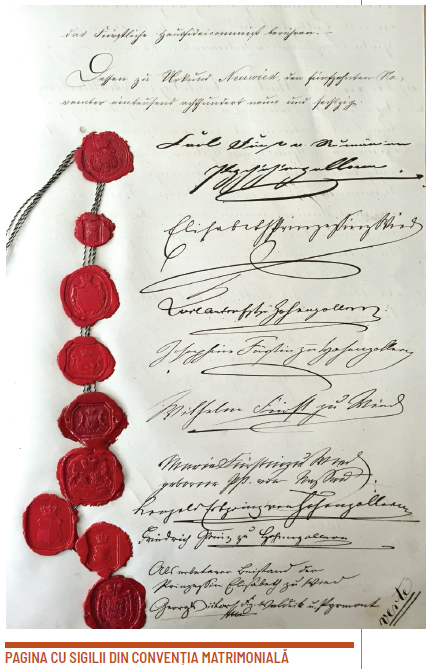 das Fürstliche Hausfideicommiß berühren.
Dessen zu Urkund Neuwied, den fünfzehnten No-
vember eintausend achthundert neun und sechzig.
Carl Fürst v. Rumänien
Pz. Hohenzollern
Elisabeth Prinzessin z. Wied
Carl Anton Fürst zu Hohenzollern
Josephine Fürstin zu Hohenzollern
Wilhelm Fürst zu Wied
Marie Fürstin zu Wied
geborene Pss. von Nassau
Leopold Erbprinz von Hohenzollern
Friedrich Prinz zu Hohenzollern
Als erbetener Beistand der
Prinzessin Elisabeth zu Wied
Georg Victor Fst. zu Waldeck u. Pyrmont
verte
PAGINA CU SIGILII DIN CONVENȚIA MATRIMONIALĂ